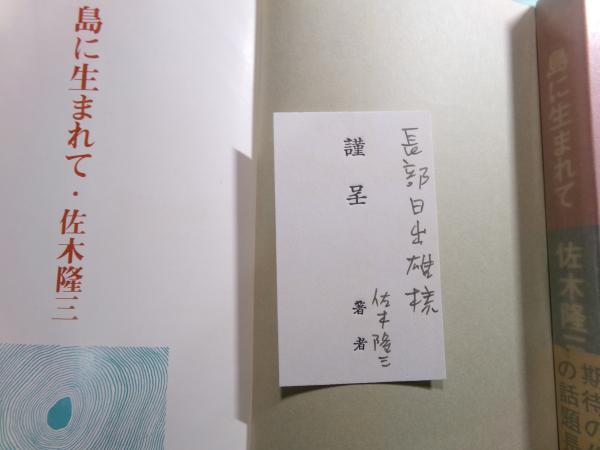 島に生まれて・佐木隆三
長部日出雄様
謹呈
著者
佐木隆三
島に生まれて
佐木隆三
期待の
の話題長